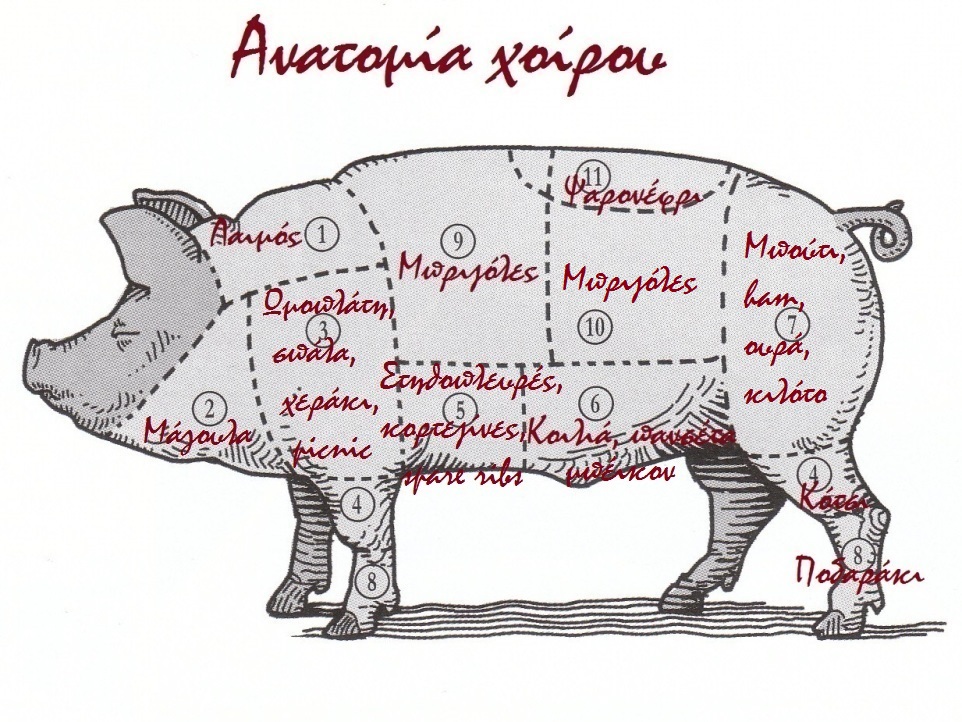 Ανατομία χοίρου
11
Ψαρονέφρι
Λαιμός 1
9
Μπριγόλες
Μπριγόλες
10
Μπούτι,
ham,
7
ουρά,
κιλότο
Ωμοπλάτη,
3
σπάλα,
χεράκι,
picnic
2
Μάγουλα
Στηθοπλευρές,
5
κορτεζίνες,
spare ribs
6
Κοιλιά, πανσέτα
μπέικον
4
8
4
Κότσι
8
Ποδαράκι